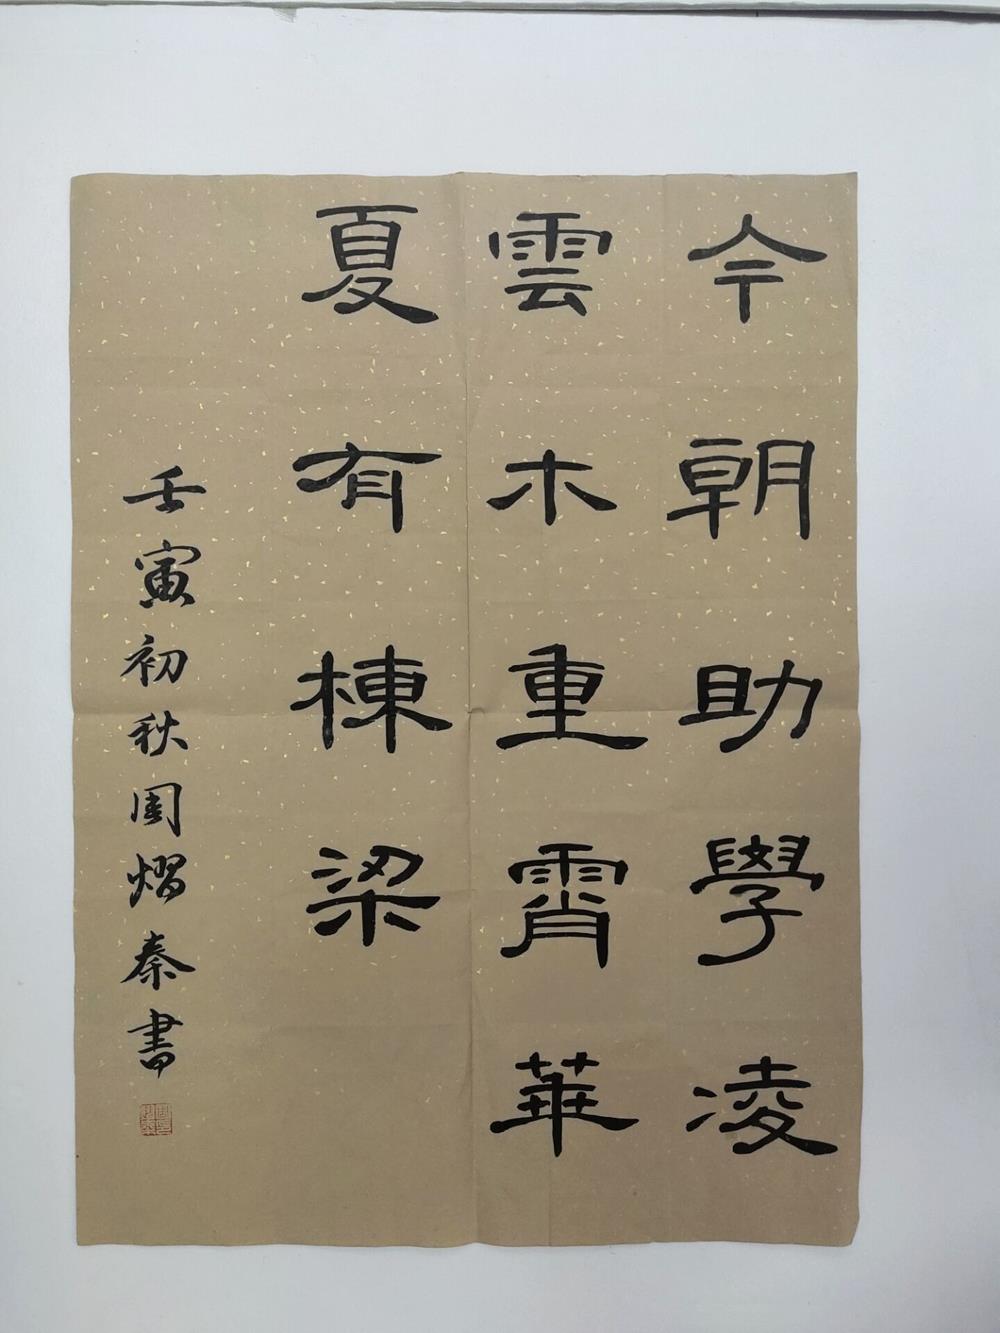 今朝助學凌
雲木重霄華
夏有棟梁
壬寅初秋周熠秦書